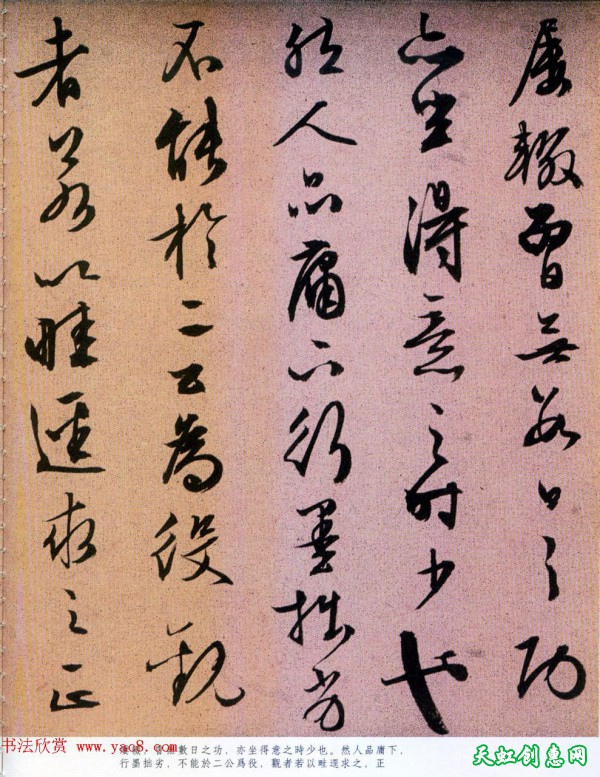 屡辍曾無數日之功
亦坐得意之時少也
然人品庸下行墨拙劣
不能於二公為役觀
者若以畦逕求之正
書法欣賞 www.yac8.com
數日之功,亦坐得意之時少也。然人品庸下,
行墨拙劣,不能於二公爲役,觀者若以畦逕求之。正
天虹创意网